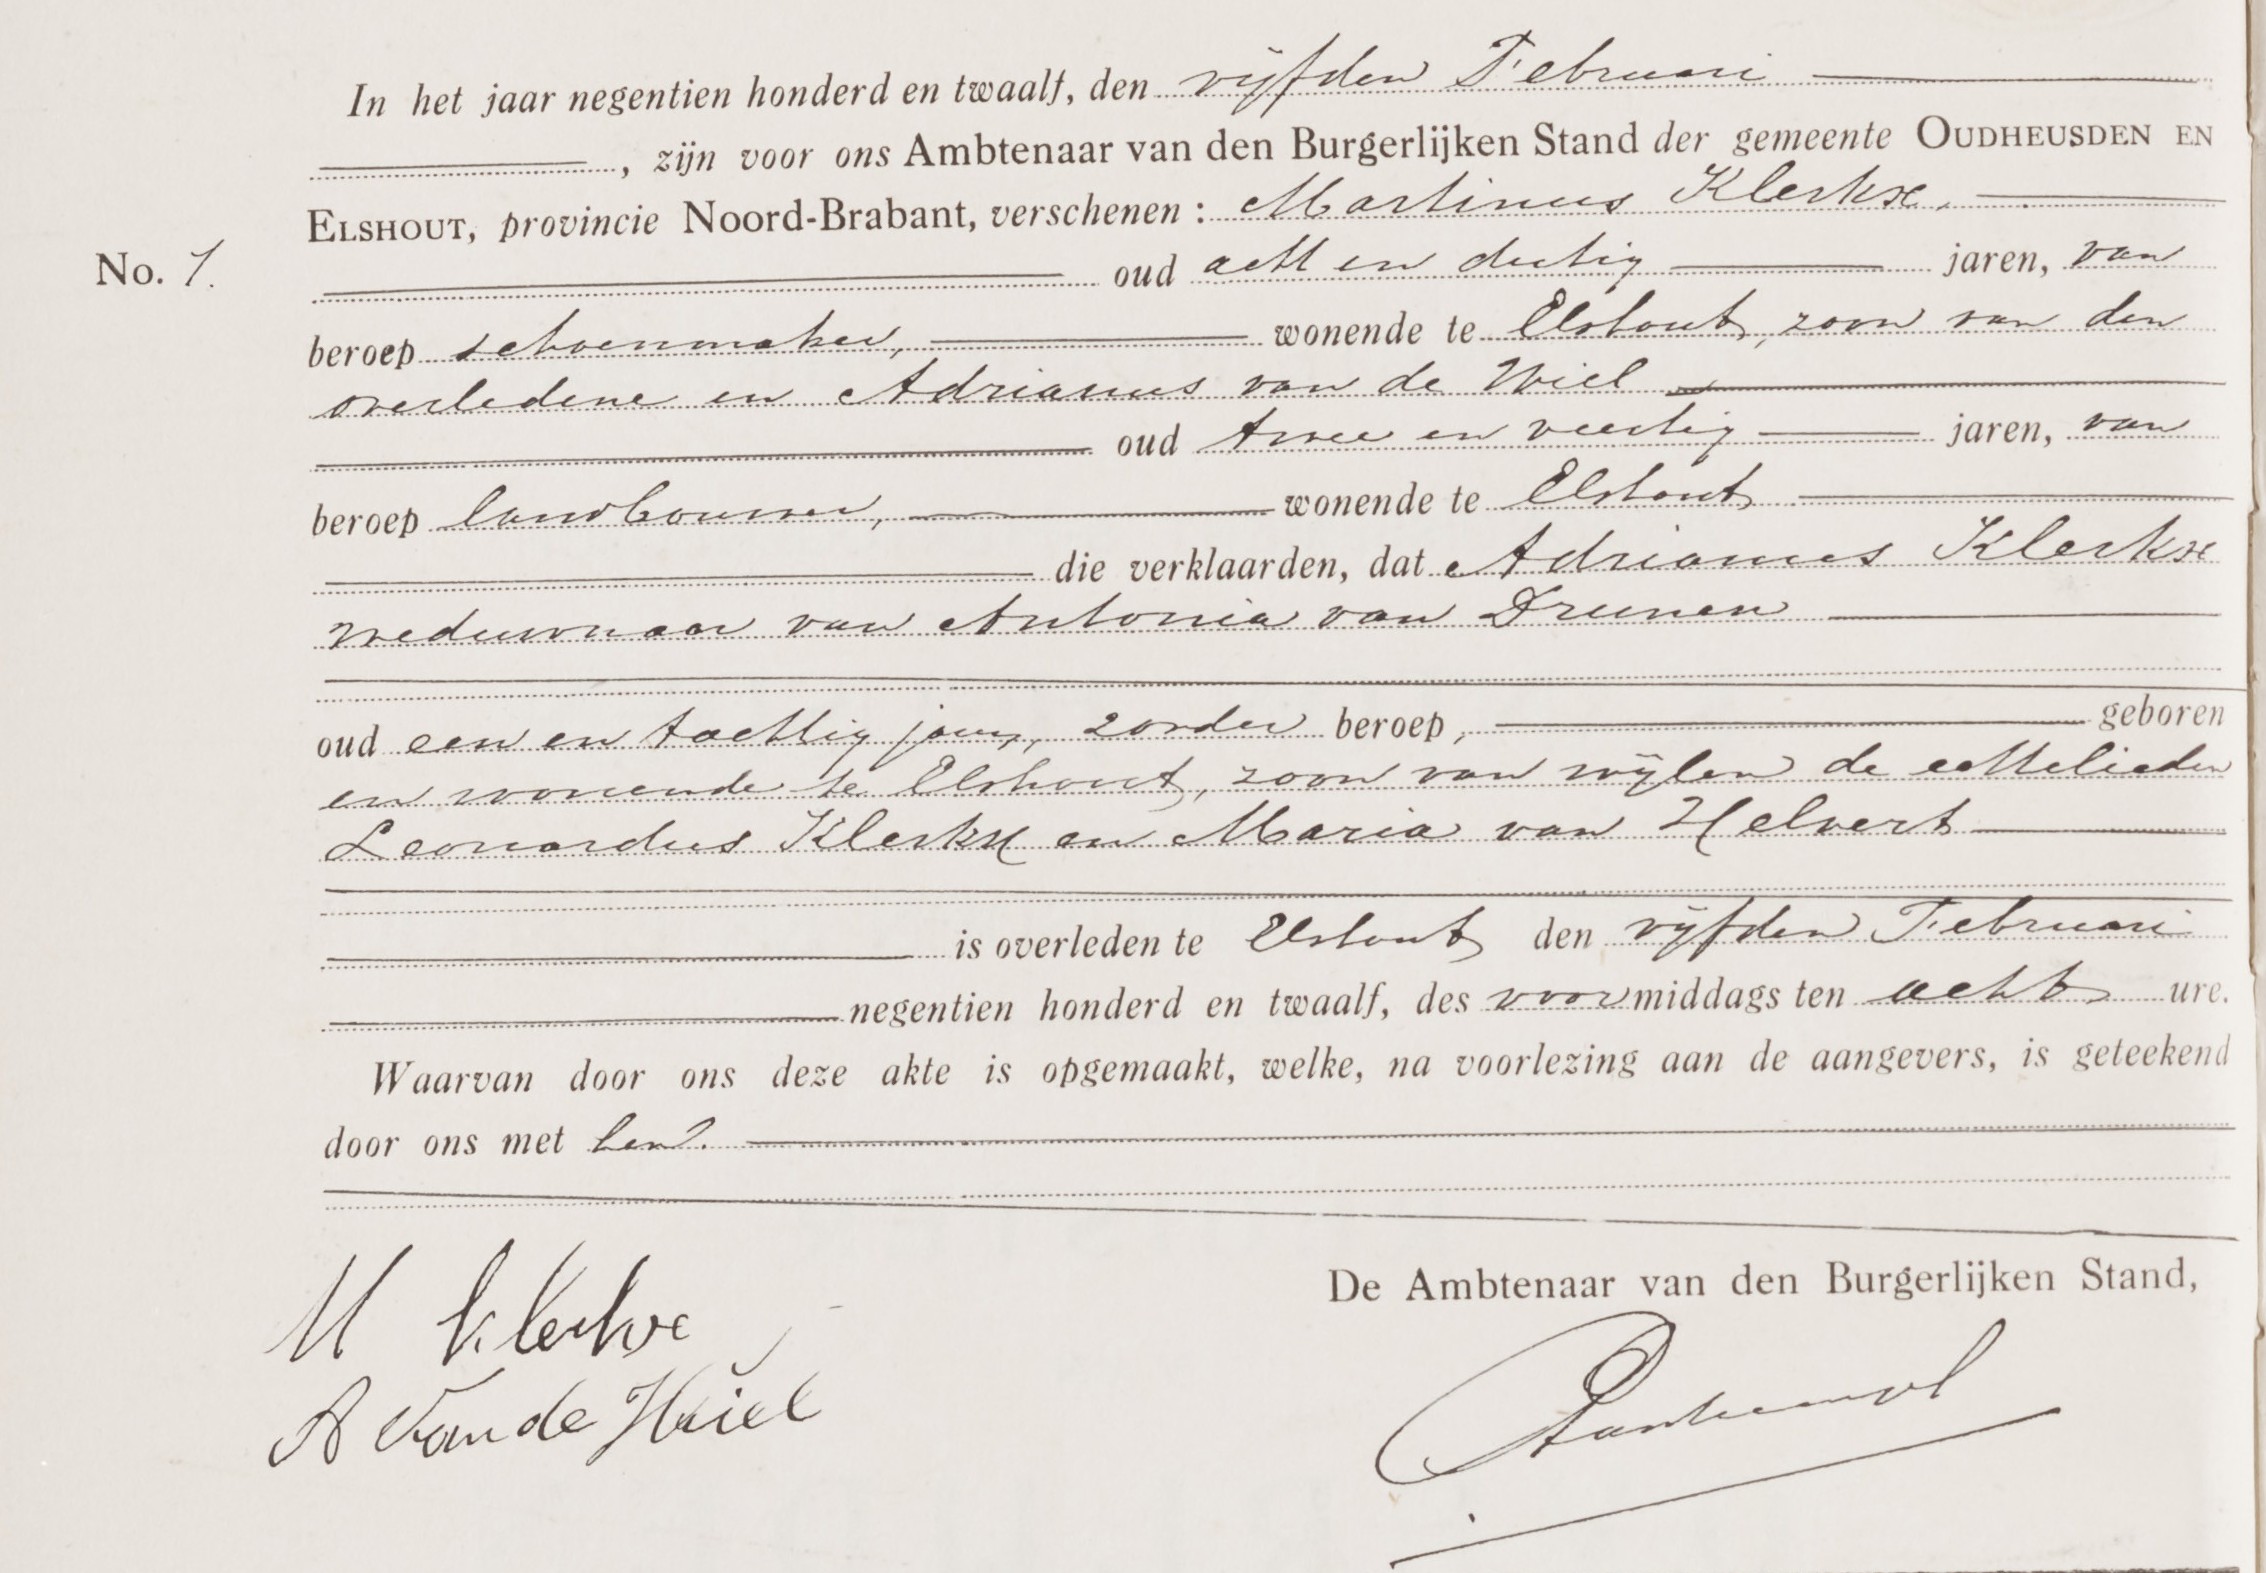 In het jaar negentien honderd en twaalf, den vijfden Februari
, zijn voor ons Ambtenaar van den Burgerlijken Stand der gemeente OUDHEUSDEN EN
ELSHOUT, provincie Noord-Brabant, verschenen : Martinus Klerkx,
No. 7.
oud acht en dertig jaren, van
beroep schoenmaker, wonende te Elshout, zoon van den
overledene en Adrianus van de Wiel
oud twee en veertig jaren, van
beroep landbouwer, wonende te Elshout
die verklaarden, dat Adrianus Klerkx
weduwnaar van Antonia van Drunen
oud een en tachtig jaren, zonder beroep, geboren
en wonende te Elshout, zoon van wijlen de echtelieden
Leonardus Klerkx en Maria van Helvert
is overleden te Elshout den vijfden Februari
negentien honderd en twaalf, des voormiddags ten acht ure.
Waarvan door ons deze akte is opgemaakt, welke, na voorlezing aan de aangevers, is geteekend
door ons met hen.
De Ambtenaar van den Burgerlijken Stand,
M Klerkx
A van de Wiel